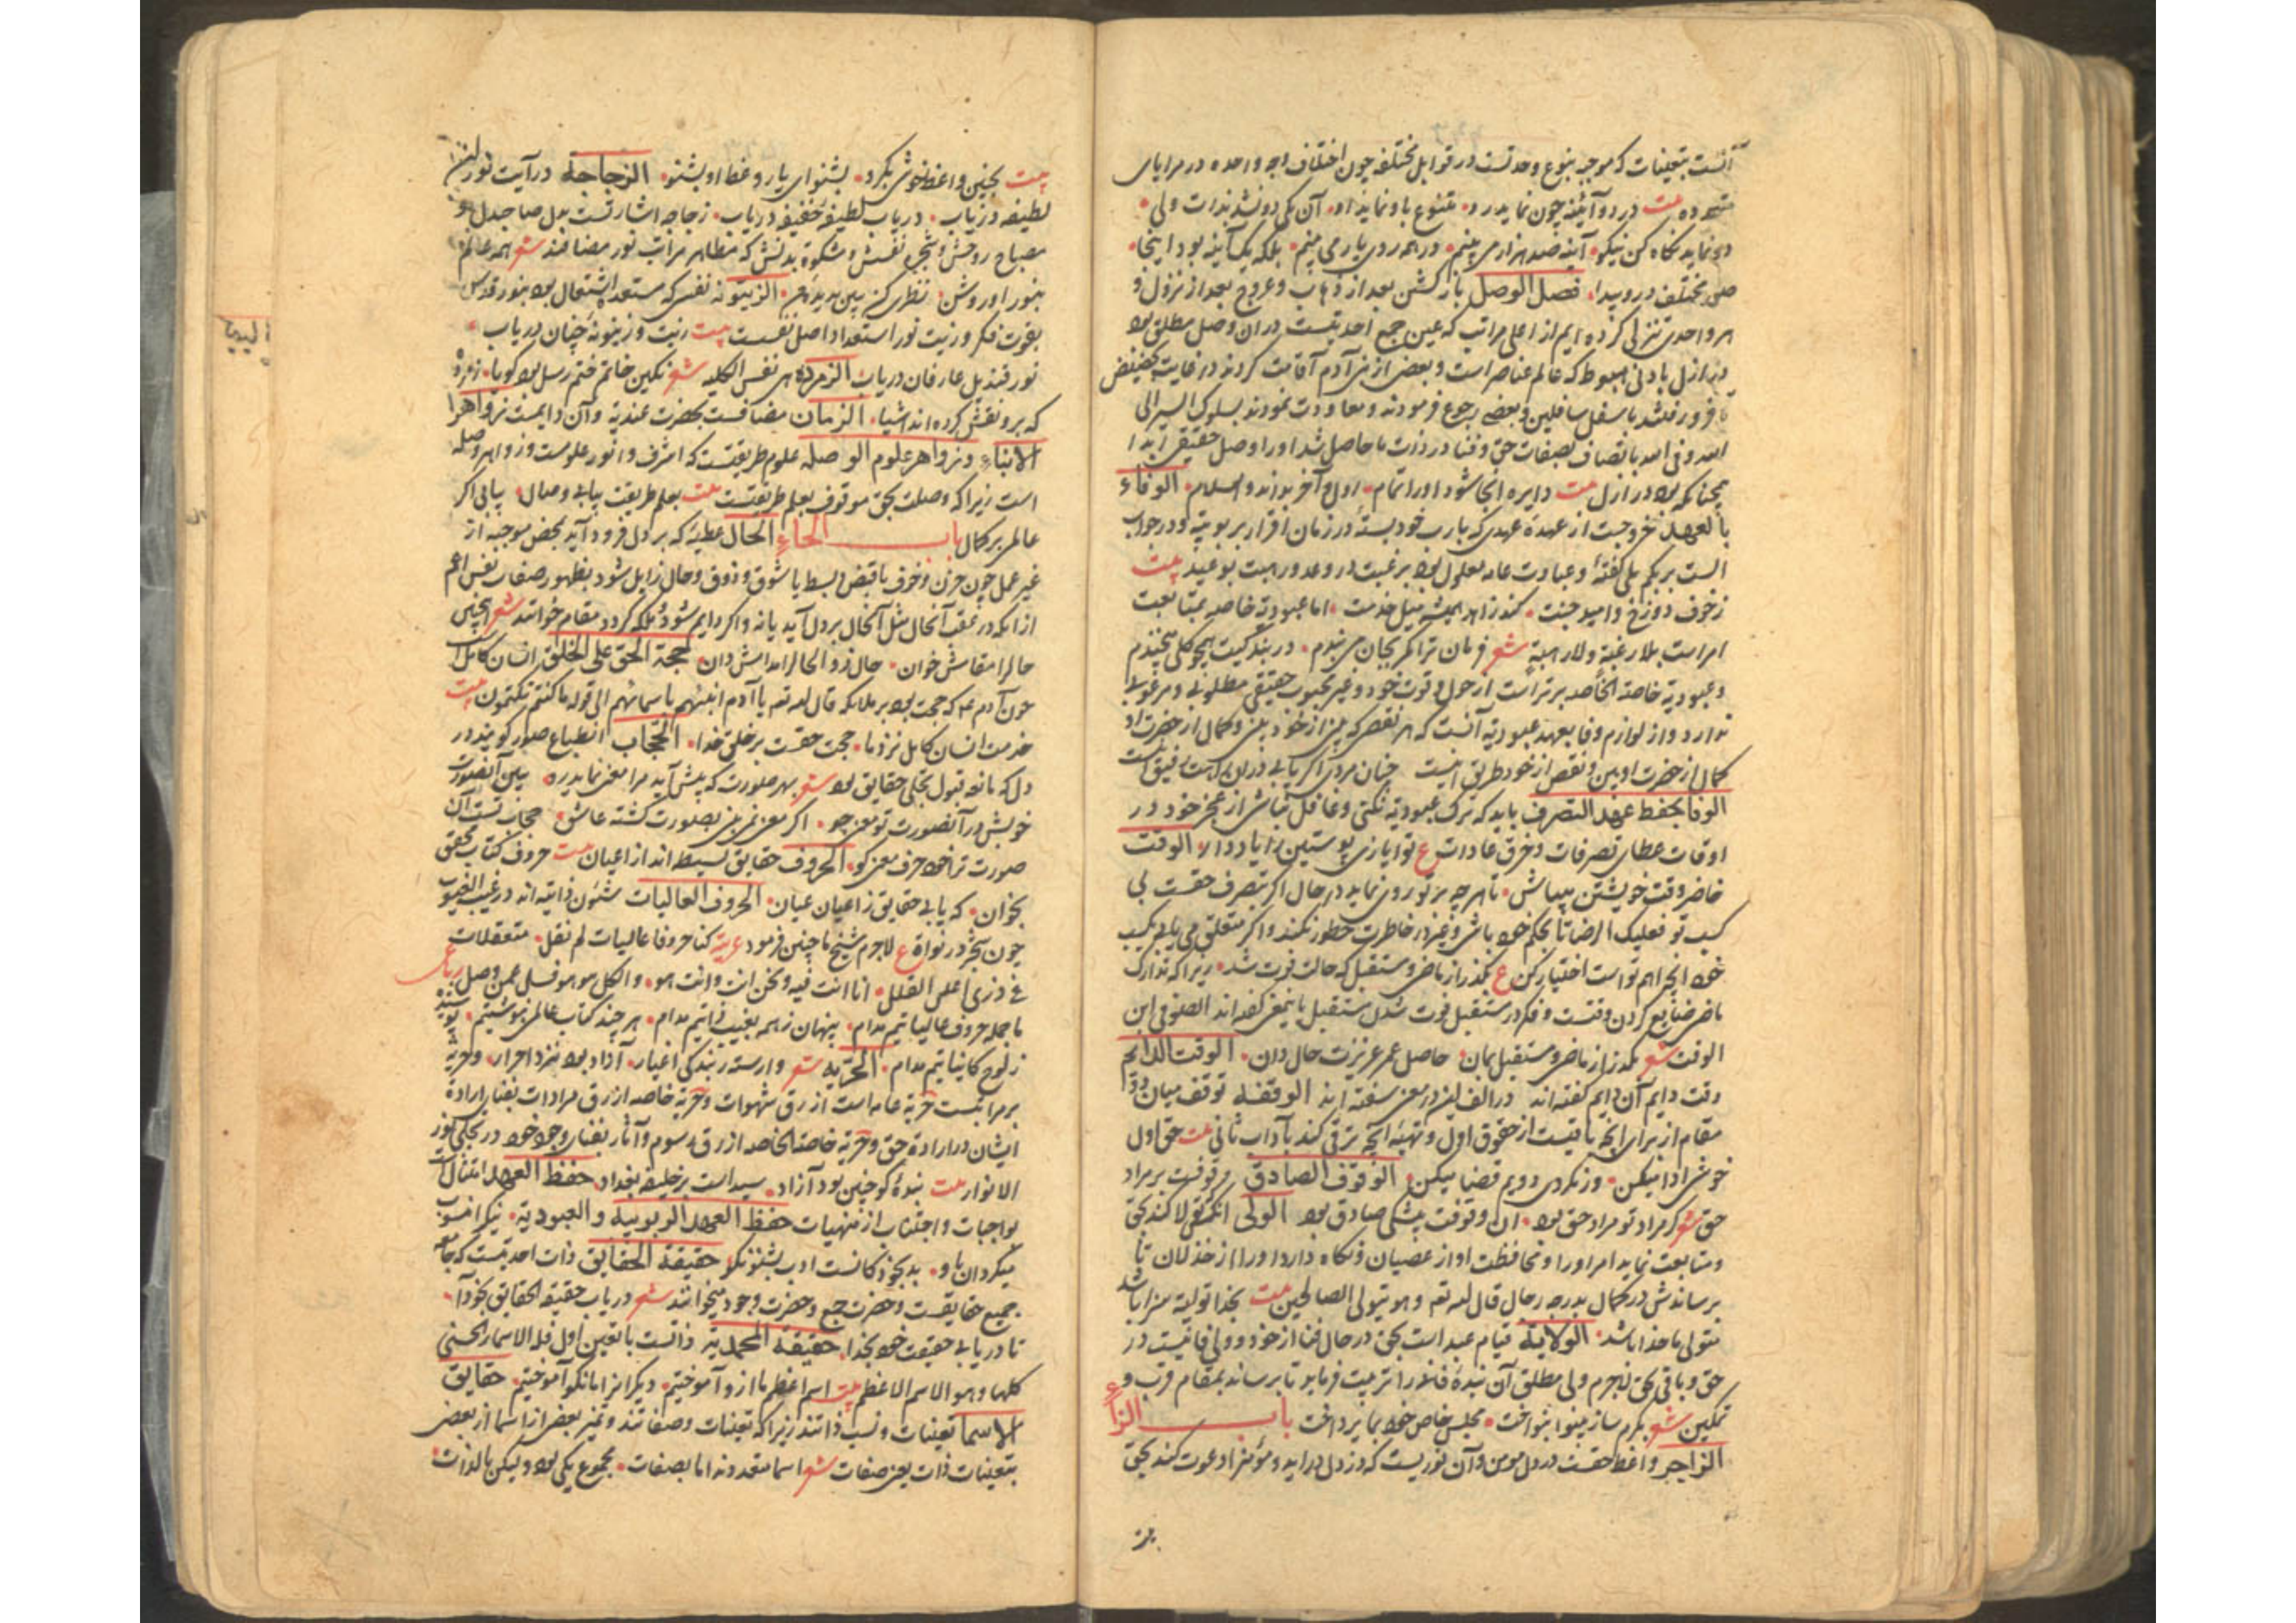 آنست بتعینات که موجب تنوع وحدتست در قوابل مختلفه چون اختلاف وجه واحده در مرایای
متعدده بیت در دو آئینه چون نماید رو • متنوع باو نماید او • آن یکی دو نشد بذات ولی •
دو نماید نگاه کن نیکو • آینه صد هزار می بینم • در همه روی یار می بینم • بلکه یک آینه بود اینجا •
صور مختلف درو پیدا • فصل الوصل بازگشتن بعد از ذهاب و عروج بعد از نزول و
هر واحدی تنزلی کرده ایم از اعلی مراتب که عین جمع احدیتست در ان وصل مطلق بود
در ازل بادنی هبوط که عالم عناصر است و بعضی از بنی آدم آقامت کردند در غایت حضیض
تا فرو رفتند باسفل سافلین و بعضی رجوع فرمودند و معاودت نمودند بسلوک السیر الی
الله و فی الله باتصاف بصفات حق و فنا در ذات تا حاصل شد او را وصل حقیقی ابدا
همچنانکه بود در ازل بیت دایره اینجا شود او را تمام • اول و آخر بدانند والسلام • الوفاء
بالعهد خروجست از عهده عهدی که با رب خود بسته در زمان اقرار بربوبیة و در جواب
الست بربکم بلی گفته و عبادت عامه معلول بود برغبت در وعد و رهبت بوعید بیت
ز خوف دوزخ و امید جنت • کند زاهد همیشه میل خدمت • اما عبودیة خاصه متابعت
امر است بلا رغبة ولا رهبة شعر فرمان ترا کمر بجان می بندم • در بندگیت
و عبودیة خاصة الخاصه برتر است از حول و قوت خود و غیر محبوب حقیقی مطلوبی و مرغوبی
ندارد و از لوازم وفا بعهد عبودیة آنست که هر نقص که بینی از خود بینی و کمال از حضرت او
کمال از حضرت او بین و نقص از خود طریق اینست
الوفا بحفظ عهد التصرف باید که ترک عبودیة نکنی و غافل نباشی از عجز خود در
اوقات عطای تصرفات و خرق عادات ع تو ایازی پوستین را یاد دار الوقت
حاضر وقت خویشتن میباش • تا هر چه بر تو روی نماید در حال اگر بتصرف حقست بی
کسب تو فعلیک الرضا تا بحکم خود باشی و غیر در خاطرت خطور نکند و اگر متعلق می یابی بکسب
خود انچه اهم تو است اختیار کن ع بگذر از ماضی و مستقبل که حالت فوت شد • زیرا که تدارک
ماضی ضایع کردن وقتست و فکر در مستقبل فوت شدن مستقبل باینمعنی گفته اند الصوفی ابن
الوقت شعر بگذر از ماضی و مستقبل بمان • حاصل عمر عزیزت حال دان • الوقت الدایم
وقت دایم آن دایم گفته اند در الف این در معنی سفته اند الوقفة توقف میان دو
مقام از برای انچه باقیست از حقوق اول و تهیئه آنچه ترقی کند بآداب ثانی بیت حق اول
خوش ادا میکن • ور نکردی دویم قضا میکن • الوقوف الصادق وقوفست بر مراد
حق شعر گر مراد تو مراد حق بود • ان وقوفت بیشکی صادق بود الولی آنکه تولا کند بحق
و متابعت نماید امر او را و محافظت او از عصیان و نگاه دارد او را از خذلان تا
برساندش در کمال بدرجه رجال قال الله تعم وهو یتولی الصالحین بیت بخدا تولیه سزا باشد
متولی ما خدا باشد • الولایة قیام عبد است بحق در حال فنا از خود و ولی فانیست در
حق و باقی بحق لاجرم ولی مطلق آن بنده فانی را تربیت فرماید تا برساند بمقام قرب و
تمکین شعر بکرم ساز بینوا بنواخت • مجلس خاص خود بما پرداخت باب الزاء
الزاجر واعظ حقست در دل مومن و آن نوریست که در دل در اید و مؤمنرا دعوت کند بحق
بیت
بیت بچنین واعظ خوشی بگرو • بشنو ای یار وعظ او بشنو • الزجاجة در آیت نور این
لطیفه دریاب • دریاب لطیفه خفیفه دریاب • زجاجه اشارتست بدل صاحبدل و
مصباح روحش و شجره نفسش و مشکوة بدنش که مظاهر مراتب نور مضافند شعر همه عالم
بنور او روشن • نظری کن ببین بدیده من • الزیتونه نفسی که مستعد اشتعال بود بنور قدس
بقوت فکر و زیت نور استعداد اصل نفسست بیت زیت و زیتونه چنان دریاب •
نور قندیل عارفان دریاب الزمرده هی نفس الکلیه شعر نگین خاتم ختم رسل بود گویا • زمرد
که برو نقش کرده اند اشیا • الزمان مضافست بحضرت عندیه و آن دایمست زواهرا
الانباء و زواهر علوم الوصله علوم طریقتست که اشرف و انور علومست و زواهر وصله
است زیرا که وصلت بحق موقوف بعلم طریقتست بیت بعلم طریقت بیابی وصال • بیابی اگر
عالمی بر کمال باب الحاء الحال عطیه که بر دل فرود آید بمحض موهبه از
غیر عمل چون حزن و خوف یا قبض یا بسط یا شوق و ذوق و حال زایل شود بظهور صفات نفس اعم
از انکه در عقب آنحال مثل آنحال بر دل آید یا نه و اگر دایم شود و ملکه گردد مقام خوانند شعر اینچنین
حال را مقامش خوان • حال ذوالحال را مدامش دان • حجة الحق علی الخلق انسان کامل
چون آدم عم که حجت بود بر ملائکه قال الله تعم یا آدم انبئهم باسمائهم الی قوله ما کنتم تکتمون بیت
خدمت انسان کامل نزد ما • حجت حقست بر خلق خدا • الحجاب انطباع صور کونیه در
دل که مانع قبول تجلی حقایق بود شعر بهر صورت که پیش آید مرا معنی نماید رو • ببین آنصورت
خویش و در آنصورت تو معنی جو • اگر معنی نمی بینی بصورت گشته عاشق • حجاب تست آن
صورت ترا خود حرف معنی گو • الحروف حقایق بسیطه اند از اعیان بیت حروف کتاب محقق
بخوان • که یابی حقایق ز اعیان عیان • الحروف العالیات شئون ذاتیه اند در غیب الغیوب
چون شجر در نواة ع لاجرم شیخ ما چنین فرمود عربیة کنا حروفا عالیات لم نقل • متعلقات
فی ذری اعلی القلل • انا انت فیه و نحن انت وانت هو • والکل هو هو فسل عمن وصل رباعی
ما جمله حروف عالیاتیم مدام • پنهان ز همه بغیب ذاتیم مدام • هر چند کتاب عالمی بنوشتیم •
ز لوح کاینایتم مدام • الحریه شعر وارسته ز بندگی اغیار • آزاد بود بنزد احرار • و حریه
بر مراتبست حریة عامه است از رق شهوات و حریة خاصه از رق مرادات بفنای ارادة
ایشان در ارادة حق و حریة خاصة الخاصه از رق رسوم و آثار بفنای وجود خود در تجلی نور
الانوار بیت بنده کو چنین بود آزاد • سید است بر خلیفه بغداد • حفظ العهد امتثالست
بواجبات و اجتناب از منهیات حفظ العهد الربوبیة و العبودیة • نیکی منسوب
میگردان باو • بد بخود کانست ادب بشنو نکو حقیقة الحقایق ذات احدیتست که جامع
جمیع حقایقست و حضرت جمع و حضرت وجود میخوانند شعر دریاب حقیقة الحقایق بخود آ •
تا دریابی حقیقت خود بخدا • حقیقة المحمدیه ذاتست با تعین اول فله الاسماء الحسنی
کلها وهو الاسم الاعظم بیت اسم اعظم ما ازو آموختیم • دیگرانرا ما نکو آموختیم • حقایق
الاسما تعینات و نسب ذاتند زیرا که تعینات و صفاتند و تمیز بعضی از اسما از بعضی
بتعینات ذات یعنی صفات شعر اسما متعددند اما بصفات • مجموع یکی بود ولیکن بالذات •